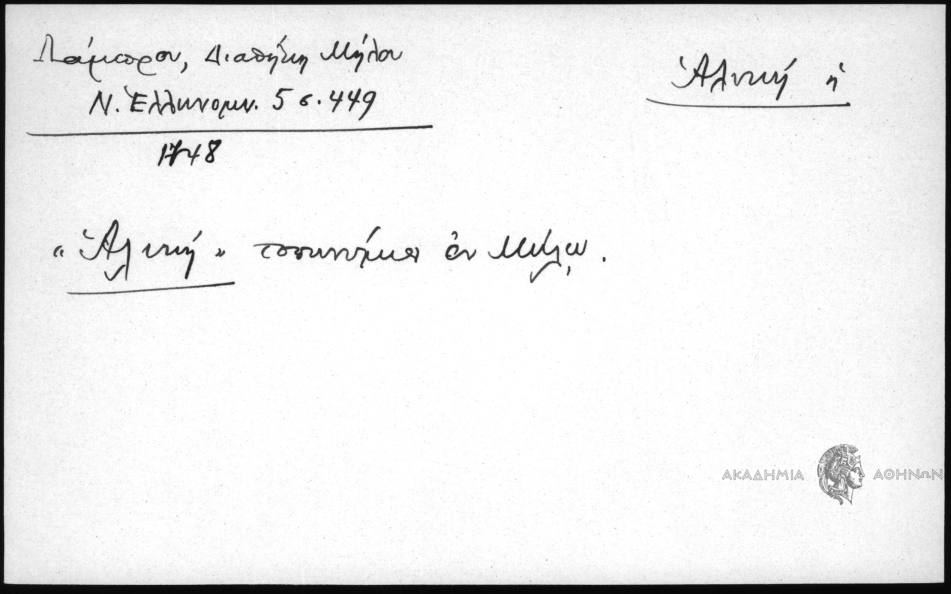 Λάμπρου, Διαθήκη Μήλου
Ν. Ἑλληνομν. 5 σ. 449
1748
Ἁλυκή ἡ
"Ἁλυκή" τοπωνύμιον ἐν Μήλῳ.
ΑΚΑΔΗΜΙΑ ΑΘΗΝΩΝ